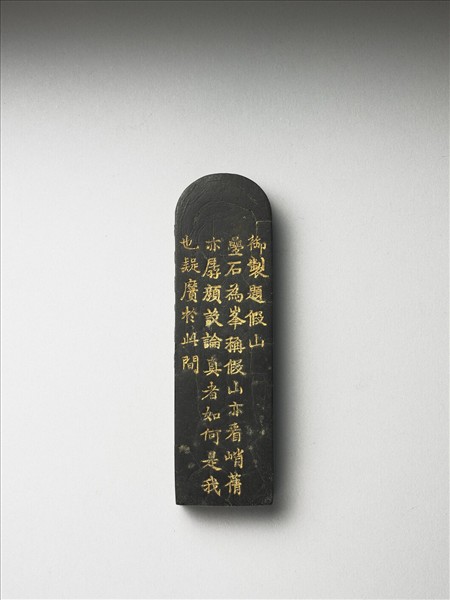 御製題假山
疊石為峯稱假山亦看峭蒨
亦孱顏設論真者如何是我
也疑於此間